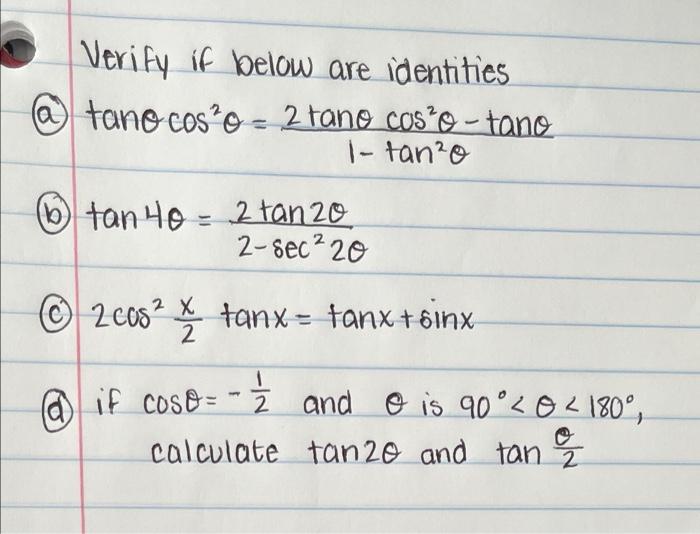 Verify if below are identities
ⓐ tanθ cos²θ = 2 tanθ cos²θ - tanθ / 1 - tan²θ
ⓑ tan 4θ = 2 tan 2θ / 2 - sec² 2θ
ⓒ 2 cos² x/2 tanx = tanx + sinx
ⓓ if cosθ = - 1/2 and θ is 90° < θ < 180°,
calculate tan2θ and tan θ/2